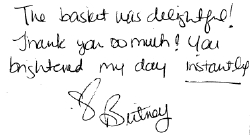 The basket was delightful!
Thank you so much! You
brightened my day instantly
Britney